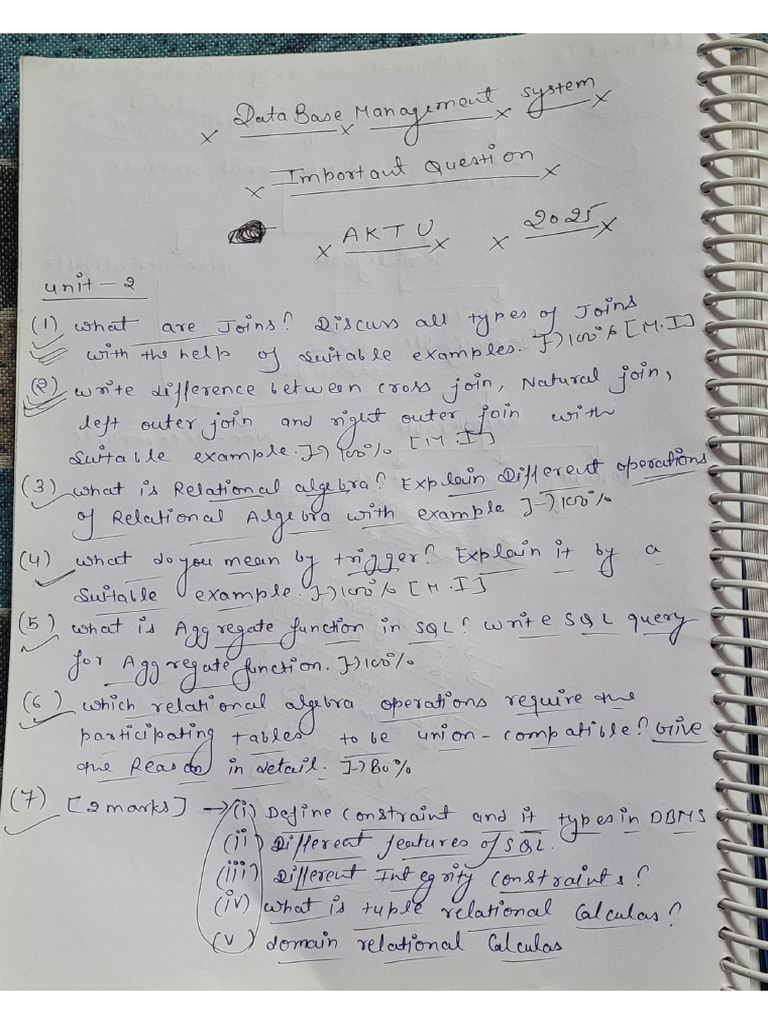 DataBase Management system
Important Question
AKTU 2025
unit-2
(1) what are Joins? Discuss all types of Joins
with the help of suitable examples. ]→100% [M.I]
(2) write difference between cross join, Natural join,
left outer join and right outer join with
suitable example. ]→100% [M.I]
(3) what is Relational algebra? Explain Different operations
of Relational Algebra with example ]→100%
(4) what do you mean by trigger? Explain it by a
suitable example. ]→100% [M.I]
(5) what is Aggregate function in SQL? write SQL query
for Aggregate function. ]→100%
(6) which relational algebra operations require the
participating tables to be union-compatible? Give
the Reason in detail. ]→80%
(7) [2 marks] → (i) Define constraint and it types in DBMS
(ii) Different features of SQL.
(iii) Different Integrity constraints?
(iv) what is tuple relational Calculas?
(v) domain relational Calculas